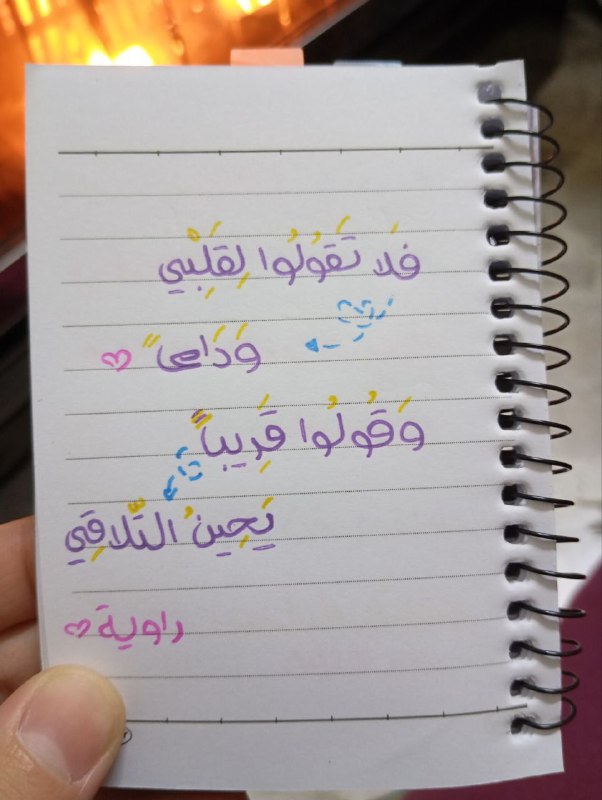 فَلا تَقُولُوا لِقَلْبِي
وَدَاعاً
وَقُولُوا قَرِيباً
يَحِينُ التَّلاقِي
راوية